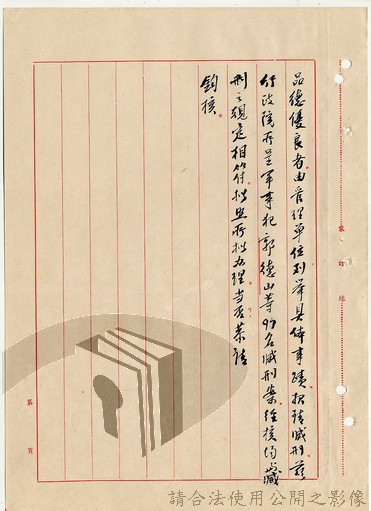 品德優良者由管理單位列舉具体事蹟報請減刑茲
行政院所呈軍事犯郭德山等97名減刑案經核均與減
刑之規定相符擬照所擬辦理當否恭請
鈞核
裝訂線
第 頁
請合法使用公開之影像